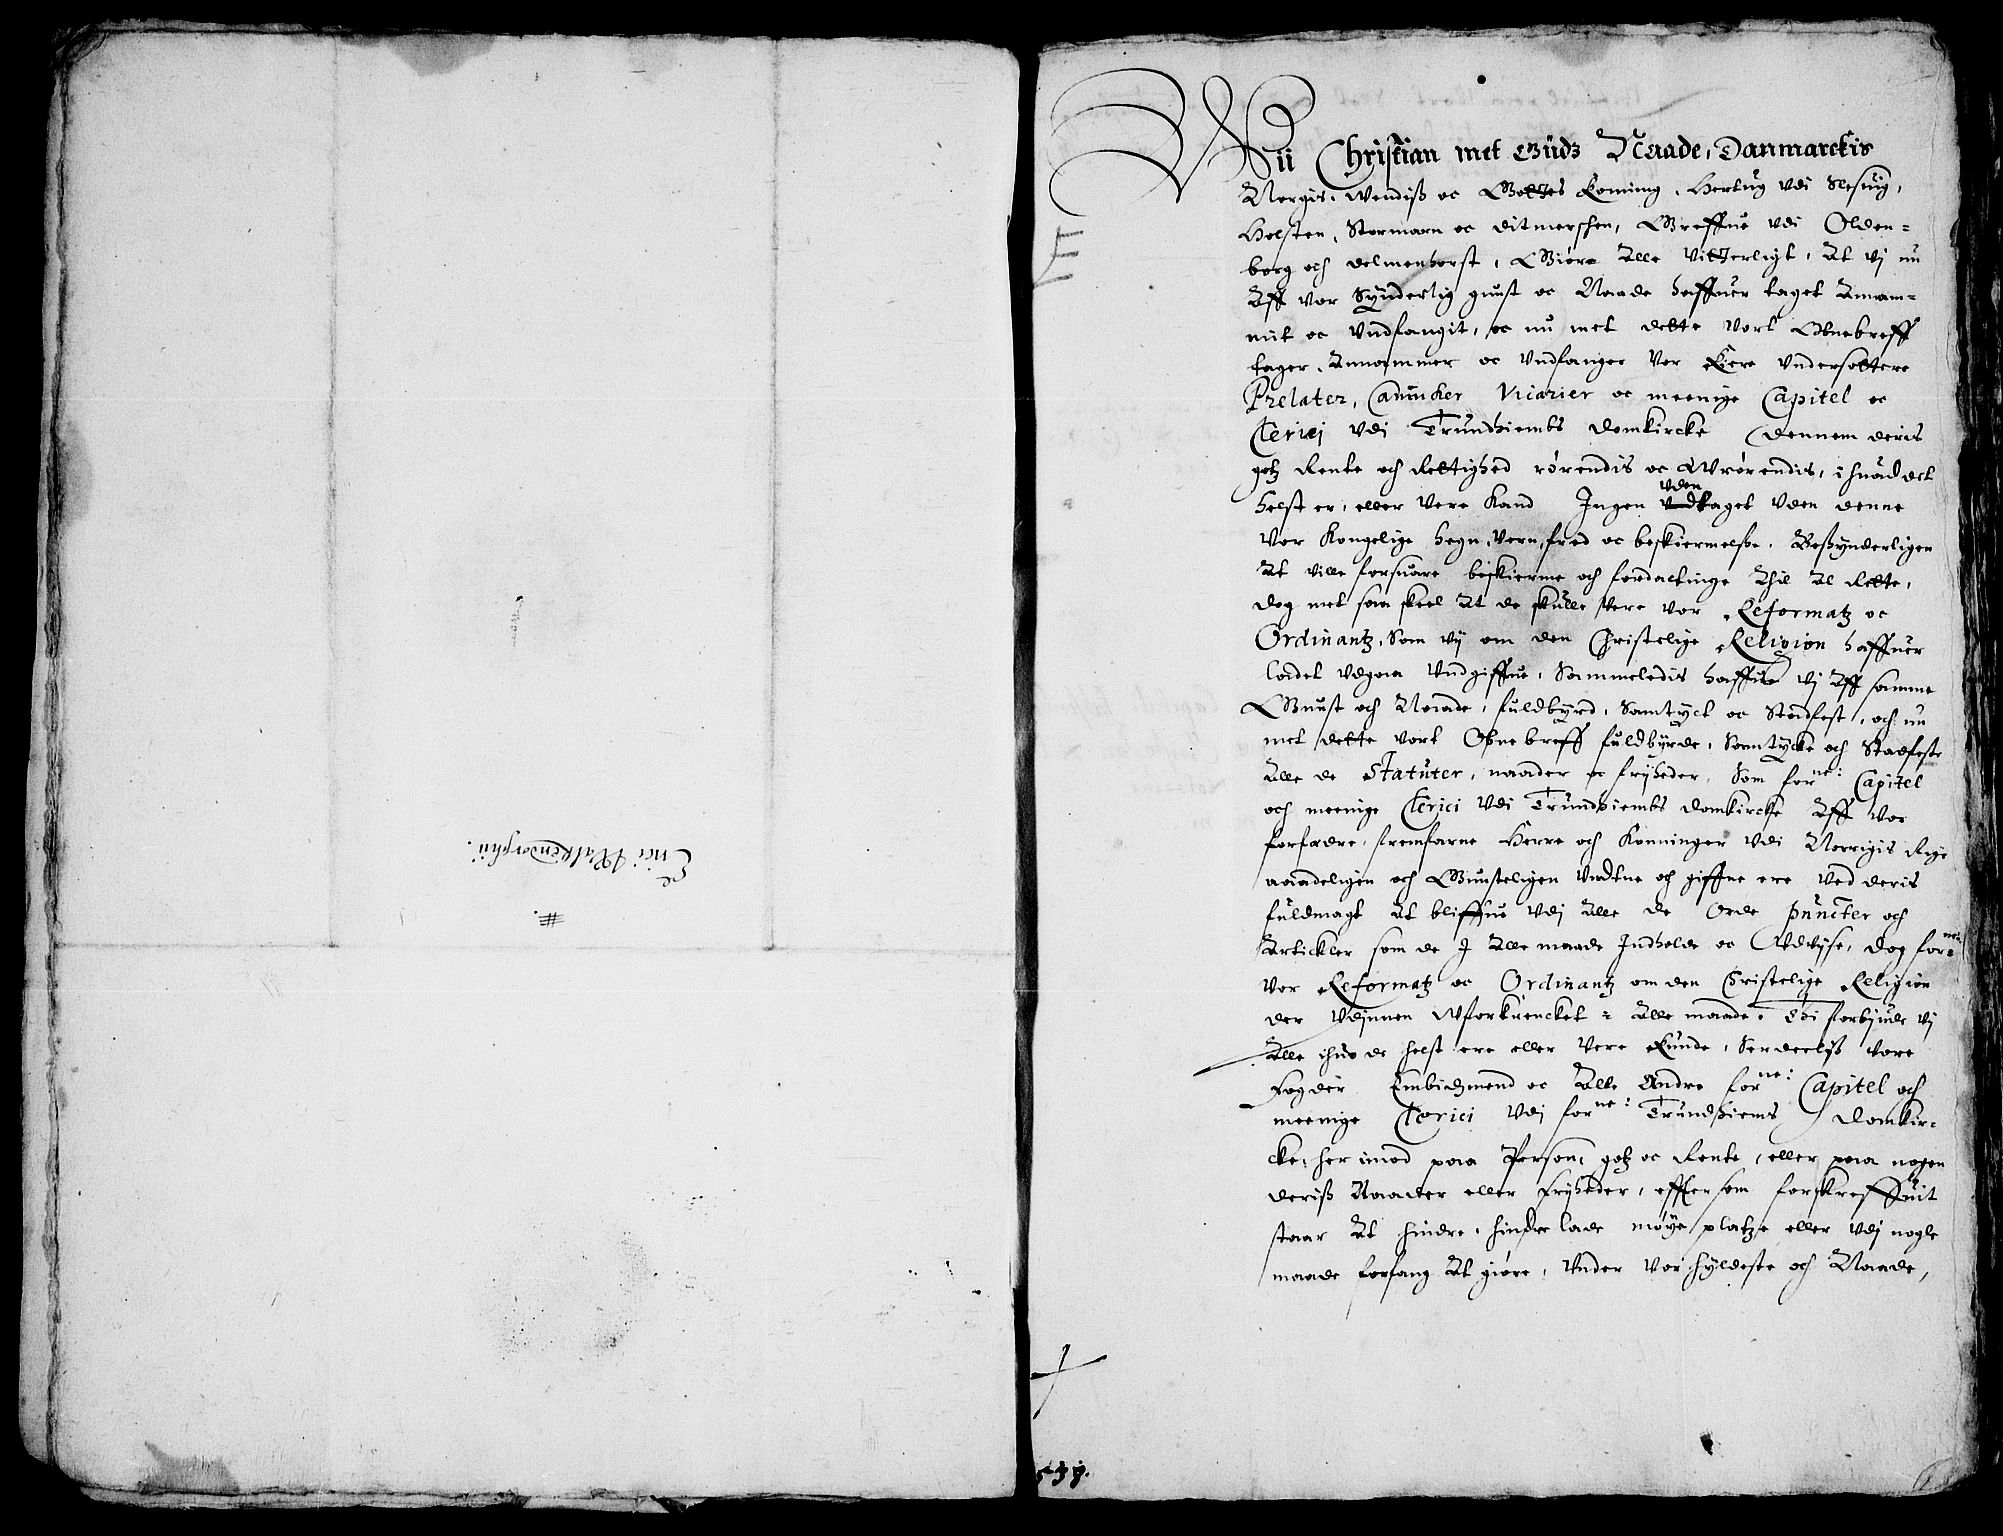 Erici Walkendorphii.
#
E
Wii Christian met Gudz Naade, Danmarckis
Norgis, Wendiß oc Gottes Koning, Hertug vdi Slesuig,
Holsten, Stormarn oc Ditmerschen, Greffue vdi Olden=
borg och Delmenhorst, Giøre Alle vitterligt, At vj nu
Aff vor Synderlig gunst oc Naade haffuer taget Annam=
mit oc Vndfangit, oc nu met dette vort Obnebreff
tager, Annammer oc Vndfanger Vor Kiere Vndersotterne
Prelater, Canucker Vicarier oc meenige Capitel oc
Clericj vdi Trundhiembs Domkircke Dennem deris
gotz Rente och Rettighed rørendis oc Wrørendis, ihuad det
helst er, eller vere kand Ingen vden vndtaget vden denne
Vor Kongelige hegn, Vern, fred oc beskiermelße. Beßynderligen
At ville forsuare beskierme och fordactinge Thil Al Rette,
Dog met saa skeel At de skulle vere vor Reformatz oc
Ordinantz, Som vij om den Christelige Religion haffuer
ladet vdgaa Vndgiffue, Sammeledis haffue vj Aff samme
Gunst och Naade, fuldbyrd, Samtyct oc Stadfest, och nu
met dette vort Obne breff fuldbyrde, Samtycke och Stadfeste
Alle de Statuter, naader oc fryheder, Som forne: Capitel
och meenige Clerici vdi Trundhiembs Domkircke Aff Vor
forfædre, fremfarne Herre och Konninger vdi Norrigis Rige
naadeligen och Gunsteligen Vndtne och giffne ere Ved deris
fuldmagt At bliffue vdj Alle de Orde puncter och
Artickler som de I Alle maade Indholde oc Vdvyse, Dog forne:
Vor Reformatz oc Ordinantz om den Christelige Religion
der vdjnnen Wforkrencket i Alle maade. Thi forbyude vj
Alle ihuo de helst ere eller vere kunde, Serdeelis vore
Fogder Embidzmend oc Alle Andre forne: Capitel och
meenige Clerici vdj forne: Trundhiems Domkir=
cke, her imod paa Person, gotz oc Rente, eller paa nogen
deriß Naader eller Fryheder, effter som forskreffuit
staar At hindre, hindre lade møye platze eller vdj nogle
maade forfang At giøre, Vnder Vor hyldeste och Naade,